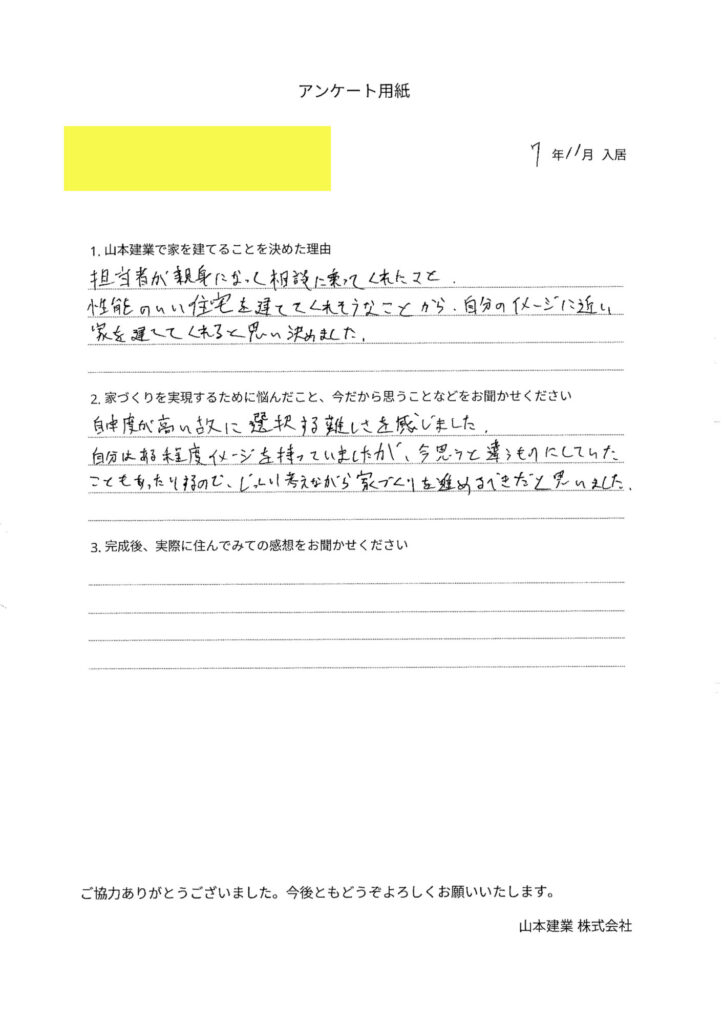 アンケート用紙
7 年 11月 入居
1. 山本建業で家を建てることを決めた理由
担当者が親身になって相談に乗ってくれたこと、
性能のいい住宅を建ててくれそうなことから、自分のイメージに近い
家を建ててくれると思い決めました。
2. 家づくりを実現するために悩んだこと、今だから思うことなどをお聞かせください
自由度が高い故に選択する難しさを感じました。
自分はある程度イメージを持っていましたが、今思うと違うものにしていた
こともあったりするので、じっくり考えながら家づくりを進めるべきだと思いました。
3. 完成後、実際に住んでみての感想をお聞かせください
ご協力ありがとうございました。今後ともどうぞよろしくお願いいたします。
山本建業 株式会社